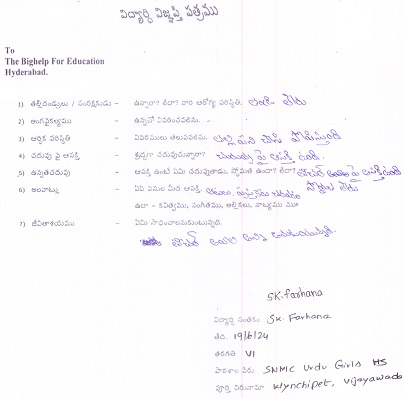 విద్యార్థి విజ్ఞప్తి పత్రము
To
The Bighelp For Education
Hyderabad.
1) తల్లిదండ్రులు / సంరక్షకుడు – ఉన్నారా? లేరా? వారి ఆరోగ్య పరిస్థితి. తండ్రి లేరు
2) అంగవైకల్యము – ఉన్నచో వివరించవలెను. –
3) ఆర్థిక పరిస్థితి – వివరములు తెలుపవలెను. తల్లి పని చేసి పోషిస్తుంది
4) చదువు పై ఆసక్తి – శ్రద్ధగా చదువుచున్నారా? చదువు పై ఆసక్తి ఉంది.
5) ఉన్నతచదువు – ఆసక్తి ఉంటే ఏమి చదువుతాడు, స్తోమత ఉందా? లేదా? టీచర్ పై ఆసక్తి ఉంది
6) అలవాట్లు – ఏ ఏ పనుల మీద ఆసక్తి
ఉదా – కవిత్వము, సంగీతము, అల్లికలు, నాట్యము
7) జీవితాశయము – ఏమి సాధించాలనుకుంటున్నది.
టీచర్ అవ్వాలి అని
S.K. farhana
విద్యార్థి సంతకం Sk. Farhana
తేది. 19/6/24
తరగతి VI
పాఠశాల పేరు SNMC Urdu Girls HS
పూర్తి చిరునామా Wynchipet, Vijayawada